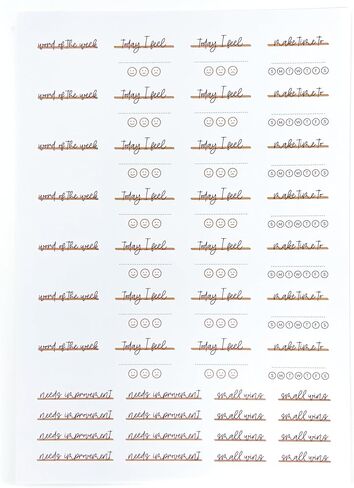 word of the week today I feel today I feel make time to
S M T W T F S
word of the week today I feel today I feel make time to
S M T W T F S
word of the week today I feel today I feel make time to
S M T W T F S
word of the week today I feel today I feel make time to
S M T W T F S
word of the week today I feel today I feel make time to
S M T W T F S
word of the week today I feel today I feel make time to
S M T W T F S
word of the week today I feel today I feel make time to
S M T W T F S
needs improvement needs improvement small wins small wins
needs improvement needs improvement small wins small wins
needs improvement needs improvement small wins small wins
needs improvement needs improvement small wins small wins